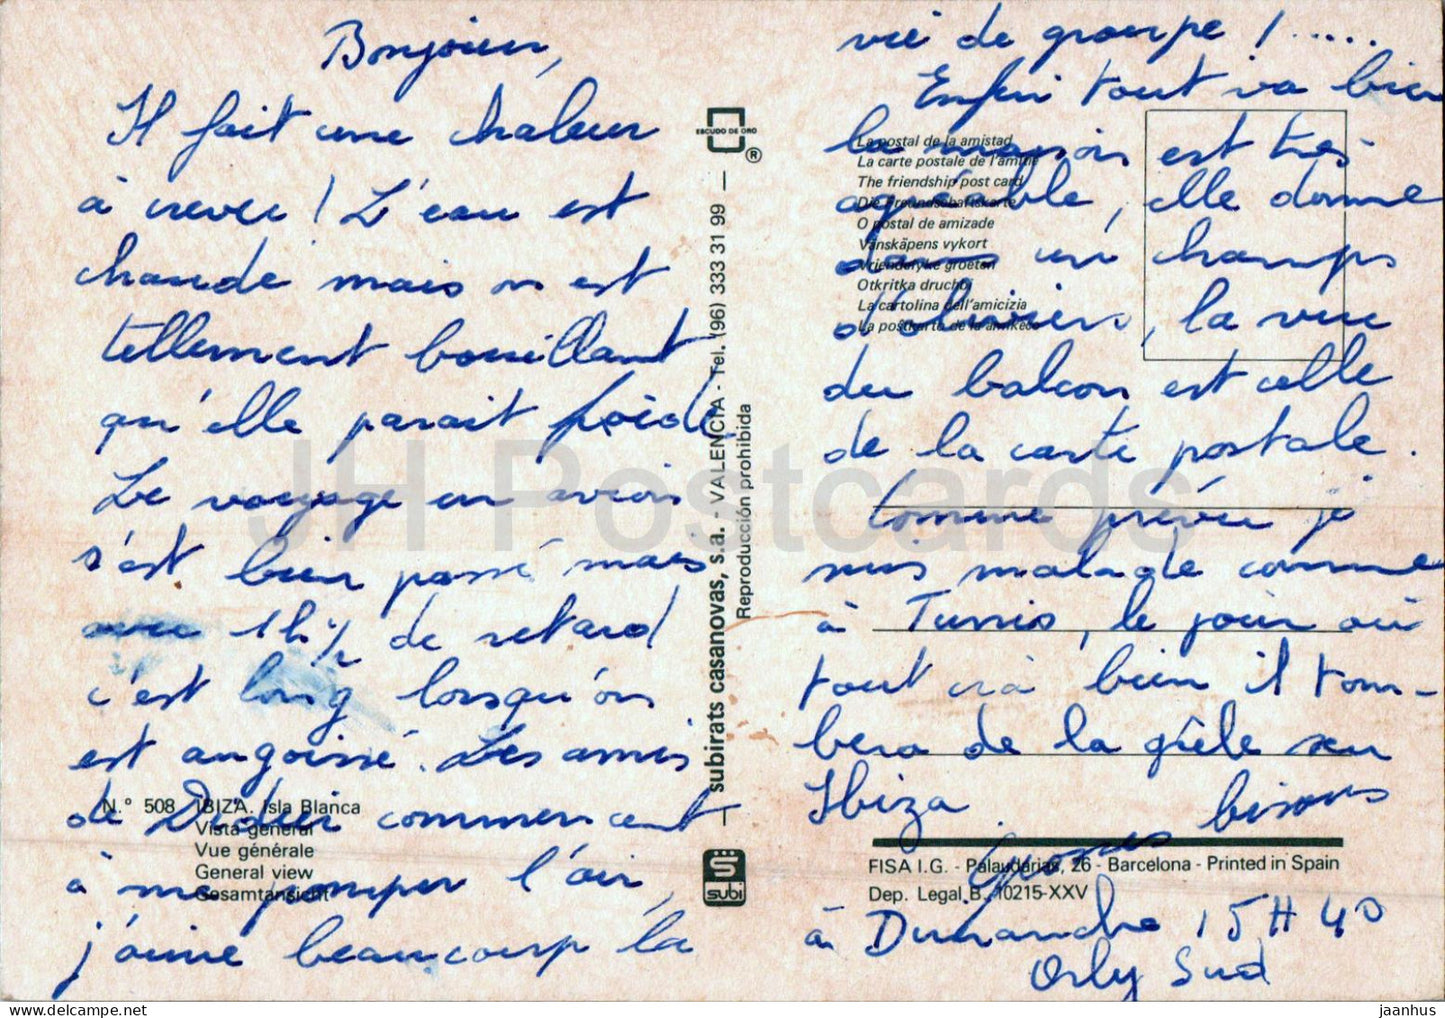 Bonjour,
Il fait une chaleur
à crever ! L'eau est
chaude mais on est
tellement bouillant
qu'elle parait froide.
Le voyage en avion
s'est bien passé mais
avec 1h 1/2 de retard
c'est long lorsqu'on
est angoissé. Les amis
de Didier commencent
à me pomper l'air,
j'aime beaucoup la
vie de groupe ! .....
Enfin tout va bien
la maison est très
agréable, elle donne
dans un champs
d'oliviers, la vue
du balcon est celle
de la carte postale.
Comme prévu je
suis malade comme
à Tunis, le jour où
tout ira bien il tom-
bera de la grêle sur
Ibiza.
Grosses bisous
à Dimanche 15H40
Orly Sud
ESCUDO DE ORO
®
La postal de la amistad
La carte postale de l'amitié
The friendship post card
Die Freundschaftskarte
O postal de amizade
Vänskäpens vykort
Vriendelyke groeten
Otkritka druchbi
La cartolina dell'amicizia
La poŝtkarto de la amikeco
subirats casanovas, s.a. - VALENCIA - Tel. (96) 333 31 99
Reproducción prohibida
subi
N.° 508 IBIZA. Isla Blanca
Vista general
Vue générale
General view
Gesamtansicht
FISA I.G. - Palaudarias, 26 - Barcelona - Printed in Spain
Dep. Legal B. 10215-XXV
JH Postcards
jaanhus